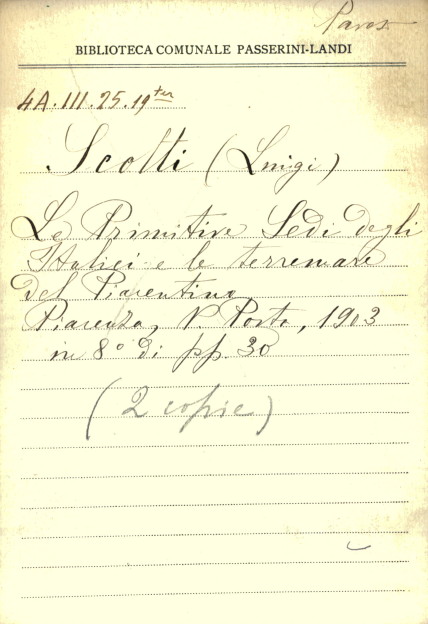 BIBLIOTECA COMUNALE PASSERINI-LANDI
4A.III.25.19ter
Scotti (Luigi)
Le Primitive Sedi degli
Italici e le terremare
del Piacentino
Piacenza, V. Porta, 1903
in 8° di pp. 30
(2 copie)